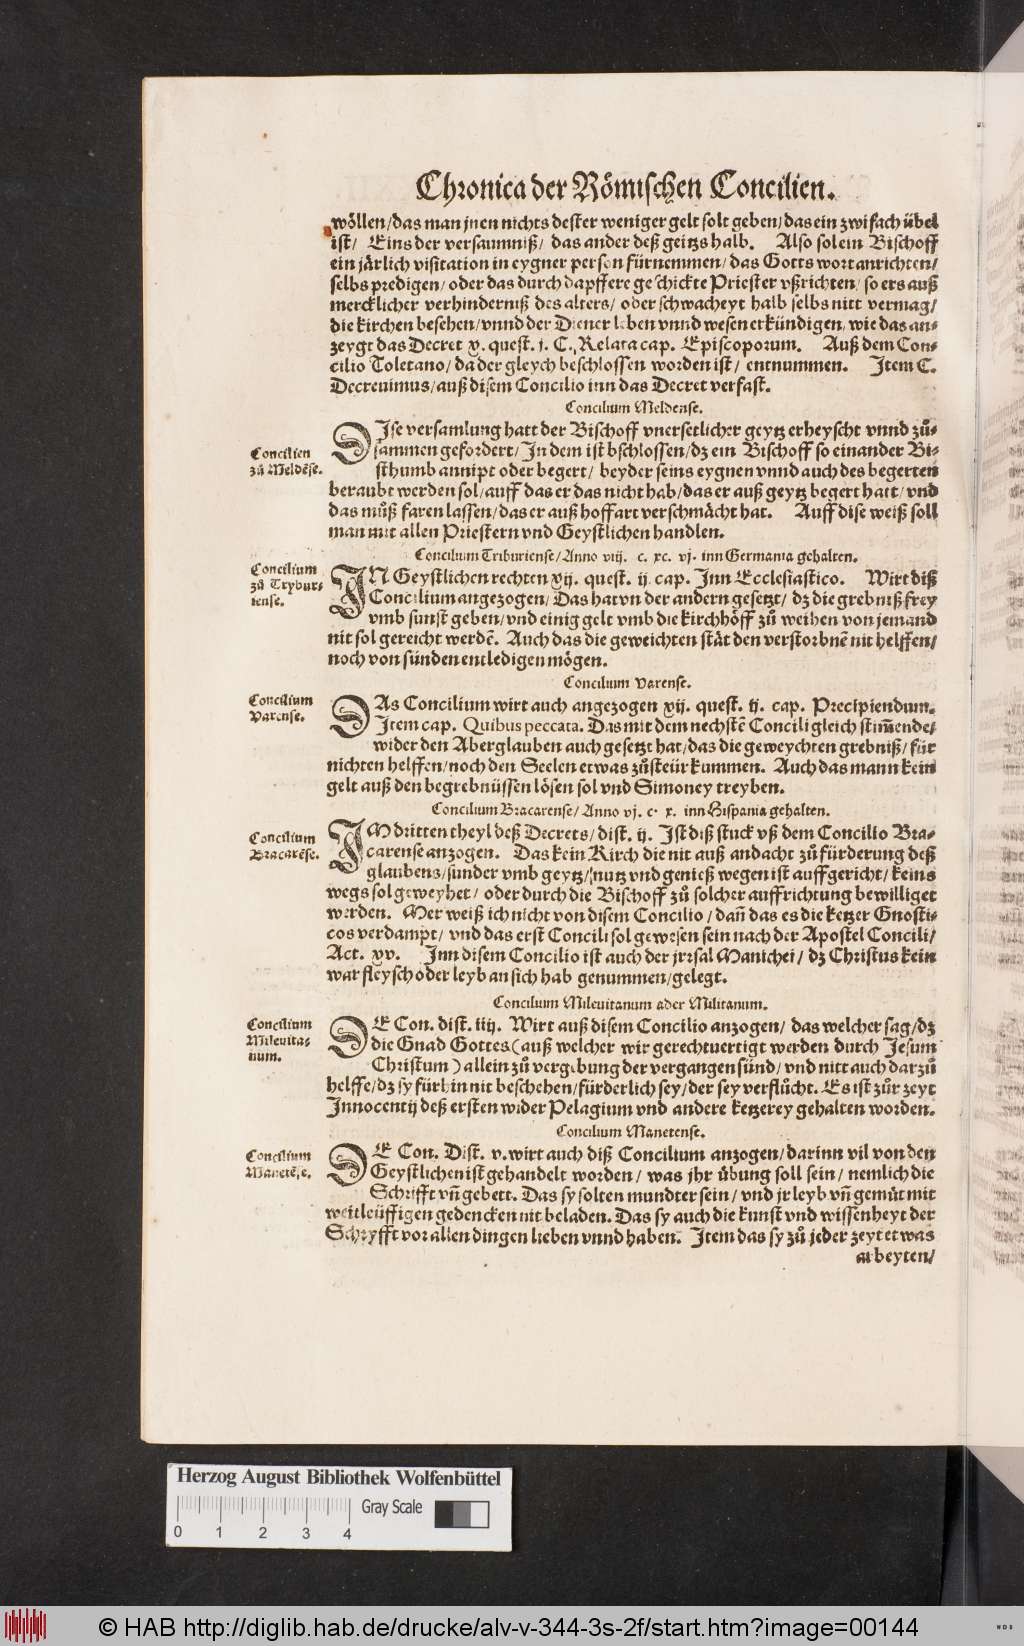 Chronica der Römischen Concilien.
wöllen/das man jnen nichts dester weniger gelt solt geben/das ein zwifach übel
ist/ Eins der versaumniß/ das ander deß geitzs halb. Also sol ein Bischoff
ein järlich visitation in eygner person fürnemmen/das Gotts wort anrichten/
selbs predigen/oder das durch dapffere geschickte Priester vßrichten/so ers auß
mercklicher verhinderniß des alters/oder schwacheyt halb selbs nitt vermag/
die kirchen besehen/vnnd der Diener leben vnnd wesen erkündigen, wie das an⸗
zeygt das Decret x. quest. j. C. Relata cap. Episcoporum. Auß dem Con⸗
cilio Toletano/da der gleych beschlossen worden ist/ entnummen. Item C.
Decreuimus/auß disem Concilio inn das Decret verfast.
Concilium Meldense.
Concilien
zů Meldẽse.
DIse versamlung hatt der Bischoff vnersetlicher geytz erheyscht vnnd zů⸗
sammen gefordert/In dem ist bschlossen/dz ein Bischoff so einander Bi⸗
sthumb annipt oder begert/ beyder seins eygnen vnnd auch des begerten
beraubt werden sol/auff das er das nicht hab/das er auß geytz begert hatt/vnd
das můß faren lassen/das er auß hoffart verschmächt hat. Auff dise weiß soll
man mit allen Priestern vnd Geystlichen handlen.
Concilium Triburiense/Anno viij. c. xc. vj. inn Germania gehalten.
Concilium
zů Trybur⸗
iense.
IN Geystlichen rechten xij. quest. ij. cap. Inn Ecclesiastico. Wirt diß
Concilium angezogen/Das hat vn der andern gesetzt/ dz die grebniß frey
vmb sunst geben/vnd einig gelt vmb die kirchhöff zů weihen von jemand
nit sol gereicht werdẽ. Auch das die geweichten stät den verstorbnẽ nit helffen/
noch von sünden entledigen mögen.
Concilium Varense.
Concilium
Varense.
DAs Concilium wirt auch angezogen xij. quest. ij. cap. Precipiendum.
Item cap. Quibus peccata. Das mit dem nechstẽ Concili gleich stim̃ende/
wider den Aberglauben auch gesetzt hat/das die geweychten grebniß/ für
nichten helffen/noch den Seelen etwas zů steür kummen. Auch das mann kein
gelt auß den begrebnüssen lösen sol vnd Simoney treyben.
Concilium Bracarense/Anno vj. c. x. inn Hispania gehalten.
Concilium
Bracarẽse.
IM dritten theyl deß Decrets/ dist. ij. Ist diß stuck vß dem Concilio Bra⸗
carense anzogen. Das kein Kirch die nit auß andacht zů fürderung deß
glaubens/sunder vmb geytz/nutz vnd genieß wegen ist auffgericht/ keins
wegs sol geweyhet/ oder durch die Bischoff zů solcher auffrichtung bewilliget
werden. Mer weiß ich nicht von disem Concilio/ dañ das es die ketzer Gnosti⸗
cos verdampt/ vnd das erst Concili sol gewesen sein nach der Apostel Concili/
Act. xv. Inn disem Concilio ist auch der jrrsal Manichei/ dz Christus kein
war fleysch oder leyb an sich hab genummen/gelegt.
Concilium Mileuitanum ader Militanum.
Concilium
Mileuita⸗
num.
DE Con. dist. iiij. Wirt auß disem Concilio anzogen/ das welcher sag/dz
die Gnad Gottes (auß welcher wir gerechtuertigt werden durch Jesum
Christum) allein zů vergebung der vergangen sünd/ vnd nitt auch darzů
helffe/dz sy fürhin nit beschehen/fürderlich sey/der sey verflůcht. Es ist zůr zeyt
Innocentij deß ersten wider Pelagium vnd andere ketzerey gehalten worden.
Concilium Manetense.
Concilium
Manetẽse.
DE Con. Dist. v. wirt auch diß Concilium anzogen/darinn vil von den
Geystlichen ist gehandelt worden/ was jhr übung soll sein/ nemlich die
Schrifft vñ gebett. Das sy solten mundter sein/ vnd jr leyb vñ gemůt mit
weitleüffigen gedencken nit beladen. Das sy auch die kunst vnd wissenheyt der
Schryfft vor allen dingen lieben vnnd haben. Item das sy zů jeder zeyt etwas
arbeyten/
Herzog August Bibliothek Wolfenbüttel
Gray Scale
0 1 2 3 4
© HAB http://diglib.hab.de/drucke/alv-v-344-3s-2f/start.htm?image=00144